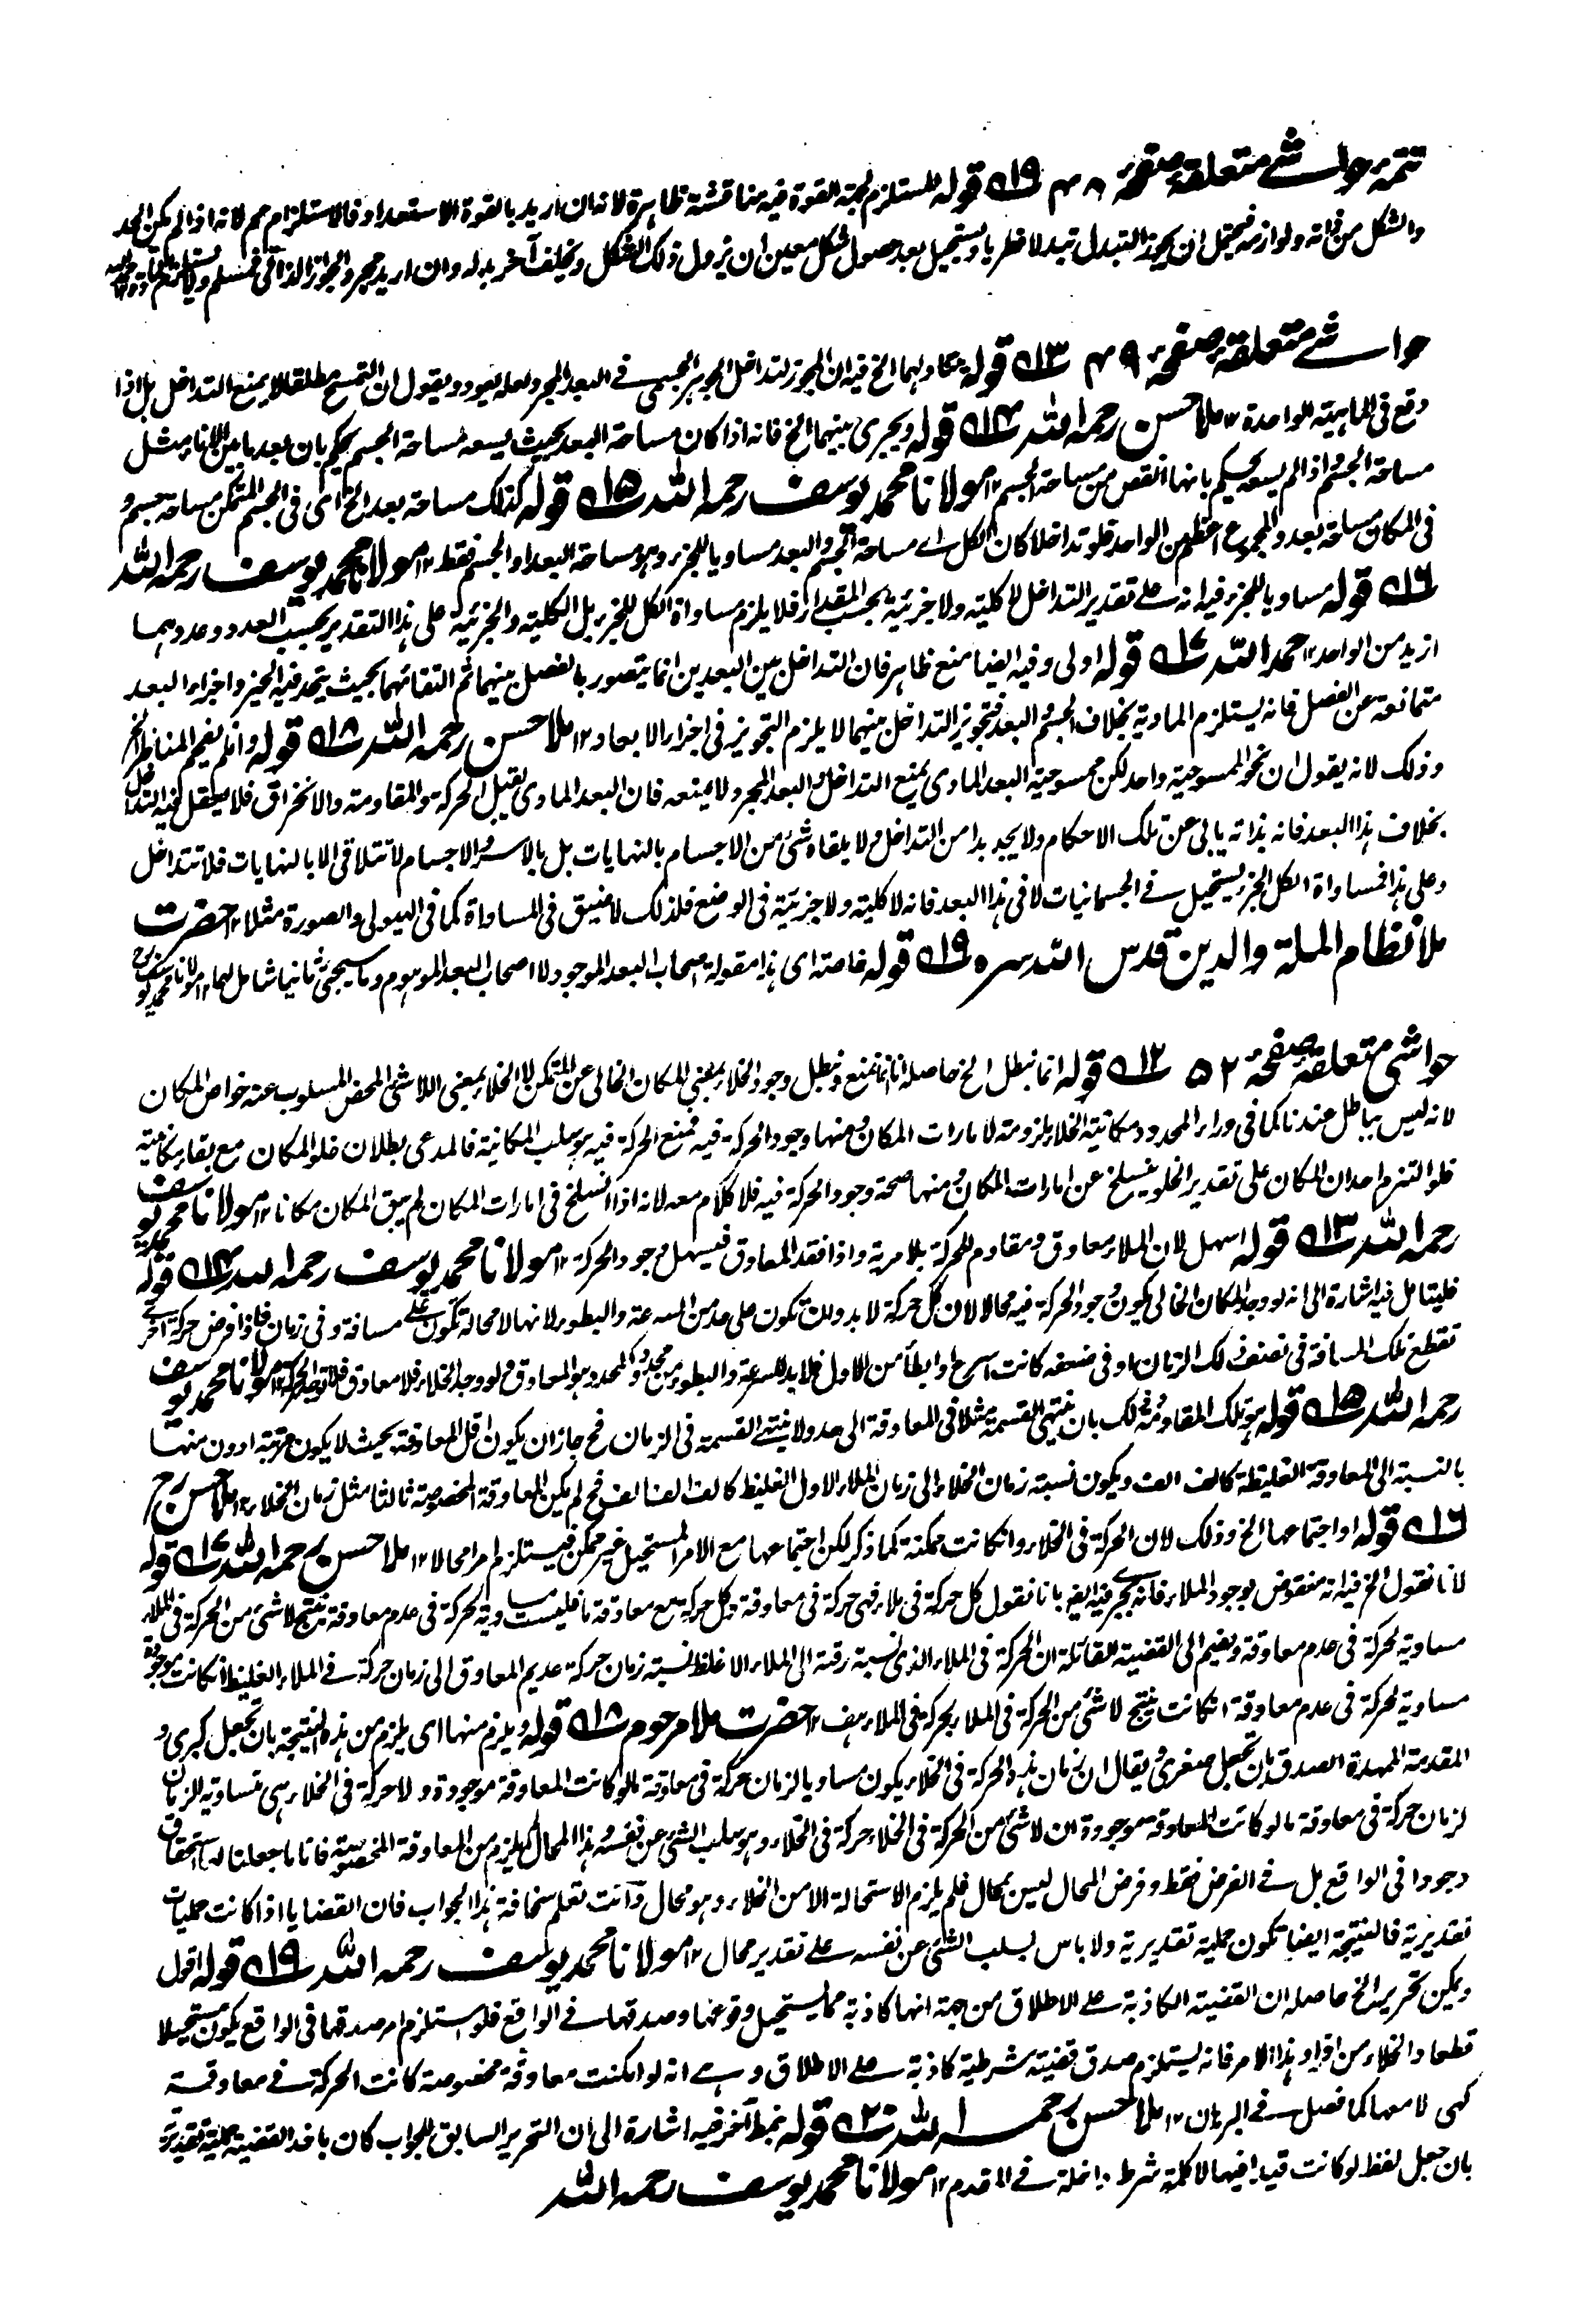 تتمہ حواشے متعلقہ صفحہ ۴۸ ۱۹ قولہ المستلزم لجہۃ القوۃ فیہ مناقشۃ ظاہرۃ لانہ ان ارید بالقوۃ الاستعداد فالاستلزام مم لانہ اذا لم یکن الحد
والشکل من ذاتہ ولوازمہ فیحتمل ان یجوز التبدل تبدلا فطریا ویستحیل بعد حصول شکل معین ان یزول ذلک الشکل ویخلف آخر بدلہ وان ارید مجرد الجواز الذاتی فمسلم
حواشے متعلقہ صفحہ ۴۹ ۱۳ قولہ الخ فیہ ان المجوز لتداخل الجوہر الجسمی فے البعد المجرد لعلہ یعود ویقول ان التمسح مطلقا لا یمنع التداخل بل اذا
وقع فی الماہیۃ الواحدۃ ۱۲ ملا حسن رحمہ اللہ ۱۴ قولہ ویجری بینہما الخ فانہ اذا کان مساحۃ البعد بحیث یسعہ مساحۃ الجسم یحکم بان بعد ما بین الاناء مثل
مساحۃ الجسم واذا لم یسعہ یحکم بانہا انقص من مساحۃ الجسم ۱۲ مولانا محمد یوسف رحمہ اللہ ۱۵ قولہ کذلک مساحۃ بعد الخ ای فی الجسم المتمکن مساحۃ جسم و
فی المکان مساحۃ بعد والمجموع اعظم من الواحد فلو تداخلا کان الکل اے مساحۃ الجسم والبعد مساویا للجزء وہو مساحۃ البعد او الجسم فقط ۱۲ مولانا محمد یوسف رحمہ اللہ
۱۶ قولہ مساویا للجزء فیہ انہ علے تقدیر التداخل لا کلیۃ ولا جزئیۃ بحسب المقدار فلا یلزم مساواۃ الکل للجزء بل الکلیۃ والجزئیۃ علی ہذا التقدیر بحسب العدد وعددہما
ازید من الواحد ۱۲ حمد اللہ ۱۷ قولہ اولی وفیہ ایضا منع ظاہر فان التداخل بین البعدین انما یتصور بالفصل بینہما ثم التقائہما بحیث یتحد فیہ الحیز واجزاء البعد
متمانعۃ عن الفصل فانہ یستلزم المادیۃ بخلاف الجسم والبعد فتجویز التداخل بینہما لا یلزم التجویز فی اجزاء الابعاد ۱۲ ملا حسن رحمہ اللہ ۱۸ قولہ وانہ لم یفحم المناظر الخ
وذلک لانہ یقول ان نحو الممسوحیۃ واحد لکن ممسوحیۃ البعد المادی یمنع التداخل والبعد المجرد لا یمنعہ فان البعد المادی یقبل الحرکۃ والمقاومۃ والانخراق فلا یعقل فیہ التداخل
بخلاف ہذا البعد فانہ بذاتہ یابی عن تلک الاحکام ولا یجد بدا من التداخل ولا یلقاہ شئ من الاجسام بالنہایات بل بالاسر والاجسام لا تتلاقی الا بالنہایات فلا تتداخل
وعلی ہذا فمساواۃ الکل الجزء یستحیل فے الجسمانیات لا فی ہذا البعد فانہ لا کلیۃ ولا جزئیۃ فی الوضع فلذلک لا ضیق فی المساواۃ کما فی الہیولی والصورۃ مثلا ۱۲ حضرت
ملا نظام الملۃ والدین قدس اللہ سرہ ۱۹ قولہ خاصۃ ای ہذا مقولۃ اصحاب البعد الموجود لا اصحاب البعد الموہوم وما سیجئ ثانیا شامل لہما ۱۲ مولانا محمد یوسف
حواشی متعلقہ صفحہ ۵۲ ۱۲ قولہ انما نبطل الخ حاصلہ انا انما نمنع ونبطل وجود الخلاء بمعنی المکان الخالی عن المتمکن لا الخلاء بمعنی اللاشئ المحض المسلوب عنہ خواص المکان
لانہ لیس بباطل عندنا کما فی وراء المحدد ومکانیۃ الخلاء ملزومۃ لامارات المکان ومنہا وجود الحرکۃ فیہ فمنع الحرکۃ فیہ ہو سلب المکانیۃ فالمدعی بطلان خلو المکان مع بقاء مکانیتہ
فلو التزم احد ان المکان علی تقدیر الخلو ینسلخ عن امارات المکان ومنہا صحۃ وجود الحرکۃ فیہ فلا کلام معہ لانہ اذا انسلخ فی امارات المکان لم یبق المکان مکانا ۱۲ مولانا محمد یوسف
رحمہ اللہ ۱۳ قولہ اسہل لان الملاء معاوق ومقاوم للحرکۃ بلا مریۃ واذا فقد المعاوق فیسہل وجود الحرکۃ ۱۲ مولانا محمد یوسف رحمہ اللہ ۱۴ قولہ
فلیتامل فیہ اشارۃ الی انہ لو وجد المکان الخالی یکون وجود الحرکۃ فیہ محالا لان کل حرکۃ لا بد وان تکون علی حد من السرعۃ والبطوء لانہا لا محالۃ تکون علے مسافۃ وفی زمان فاذا فرض حرکۃ اخرے
تقطع تلک المسافۃ فی نصف ذلک الزمان او فی ضعفہ کانت اسرع او ابطأ من الاول فلا بد للسرعۃ والبطوء من محدد والمحدد ہو المعاوق ولو وجد الخلاء فلا معاوق فلا توجد الحرکۃ ۱۲ مولانا محمد یوسف
رحمہ اللہ ۱۵ قولہ ہو تلک المقاومۃ وذلک بان ینتہی القسمۃ مثلا فی المعاوقۃ الی حد ولا ینتہے القسمۃ فی الزمان فح جاز ان یکون اقل المعاوقۃ بحیث لا یکون مرتبۃ ادون منہا
بالنسبۃ الی المعاوقۃ الغلیظۃ کالف الف ویکون نسبۃ زمان الخلاء الی زمان الملاء الاول الغلیظ کالف الف الف فح لم یکن المعاوقۃ المخصوصۃ ثالثا مثل زمان الخلاء ۱۲ ملا حسن رح
۱۶ قولہ او اجتماعہا الخ وذلک لان الحرکۃ فی الخلاء وان کانت ممکنۃ کما ذکر لکن اجتماعہا مع الامر المستحیل غیر ممکن فیستلزم امرا محالا ۱۲ ملا حسن رحمہ اللہ ۱۷ قولہ
لانا نقول الخ فیہ انہ منقوض بوجود الملاء فانہ یجرے فیہ ایضا بانا نقول کل حرکۃ فی ملاء فہی حرکۃ فی معاوقۃ وکل حرکۃ مع معاوقۃ ما فلیست مساویۃ لحرکۃ فی عدم معاوقۃ ینتج لا شئ من الحرکۃ فی الملاء
مساویۃ لحرکۃ فی عدم معاوقۃ ویضم الی القضیۃ القائلۃ ان الحرکۃ فی الملاء الذی نسبۃ رقتہ الی الملاء الاغلظ نسبۃ زمان حرکۃ عدیم المعاوق الی زمان حرکۃ فے الملاء الغلیظ ان کانت موجودۃ
مساویۃ لحرکۃ فی عدم معاوقۃ ان کانت ینتج لا شئ من الحرکۃ فی الملاء بحرکۃ فی الملاء ہف ۱۲ حضرت ملا مرحوم ۱۸ قولہ ویلزم منہا ای یلزم من ہذہ النتیجۃ بان تجعل کبری و
المقدمۃ الممہدۃ الصدق بان تجعل صغری ویقال ان زمان ہذہ الحرکۃ فی الخلاء یکون مساویا لزمان حرکۃ فی معاوقۃ ما لو کانت المعاوقۃ موجودۃ ولا حرکۃ فی الخلاء ہی متساویۃ الزمان
لزمان حرکۃ فی معاوقۃ ما لو کانت المعاوقۃ موجودۃ ان لا شئ من الحرکۃ فی الخلاء حرکۃ فی الخلاء وہو سلب الشئ عن نفسہ وہذا المحال لم یلزم من المعاوقۃ المخصوصۃ فانا ما جعلنا لہا استحقاق
وجود فی الواقع بل فے الفرض فقط وفرض المحال لیس بمحال فلم یلزم الاستحالۃ الا من الخلاء وہو محال وانت تعلم سخافۃ ہذا الجواب فان القضایا اذا کانت حملیات
تقدیریۃ فالنتیجۃ ایضا تکون حملیۃ تقدیریۃ ولا باس لسلب الشئ عن نفسہ علے تقدیر محال ۱۲ مولانا محمد یوسف رحمہ اللہ ۱۹ قولہ اقول
ویمکن تحریر الخ حاصلہ ان القضیۃ الکاذبۃ علے الاطلاق من جہۃ انہا کاذبۃ مما یستحیل وقوعہا وصدقہا فے الواقع فلو استلزم امر صدقہا فی الواقع یکون مستحیلا
قطعا والخلاء من افراد ہذا الامر فانہ یستلزم صدق قضیۃ شرطیۃ کاذبۃ علے الاطلاق وہے انہ لو امکنت معاوقۃ مخصوصۃ کانت الحرکۃ فے معاوقۃ
کہی لا معہا کما فصل فے البرہان ۱۲ ملا حسن رحمہ اللہ ۲۰ قولہ بنمط آخر فیہ اشارۃ الی ان التحریر السابق للجواب کان باخذ القضیۃ حملیۃ تقدیریۃ
بان جعل لفظ لو کانت قیدا فیہا لا کلمۃ شرط داخلۃ فے المقدم ۱۲ مولانا محمد یوسف رحمہ اللہ